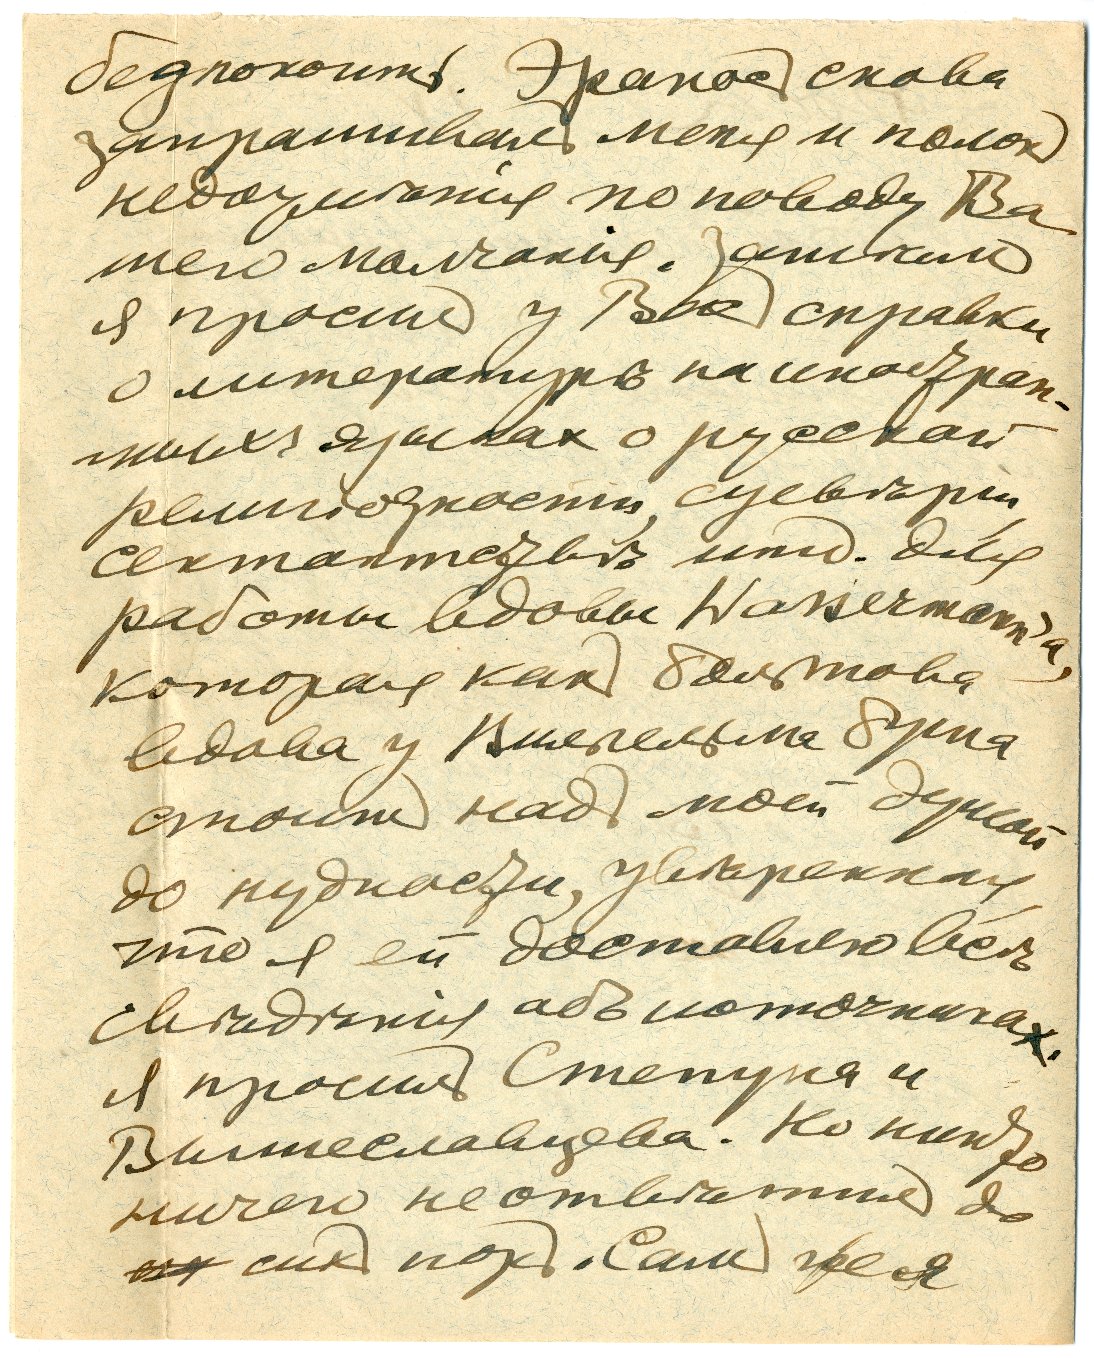 безпокоитъ. Эранос снова
запрашивалъ меня и полонъ
недоумѣнія по поводу Ва
шего молчанія. Затѣмъ
я просилъ у Васъ справки
о литературѣ на иностран-
ныхъ языках о русской
религіозности, суевѣріи,
сектантствѣ итд. для
работы вдовы Wassermann'а,
которая какъ
вдова у Вильгельма Буша
стоитъ надъ моей душой
до нудности, увѣренная
что я ей доставлю всѣ
свѣдѣнія объ источниках.
Я просилъ Степуна и
Вышеславцева. Но никто
ничего не отвѣтилъ до
сихъ поръ. Самъ же я